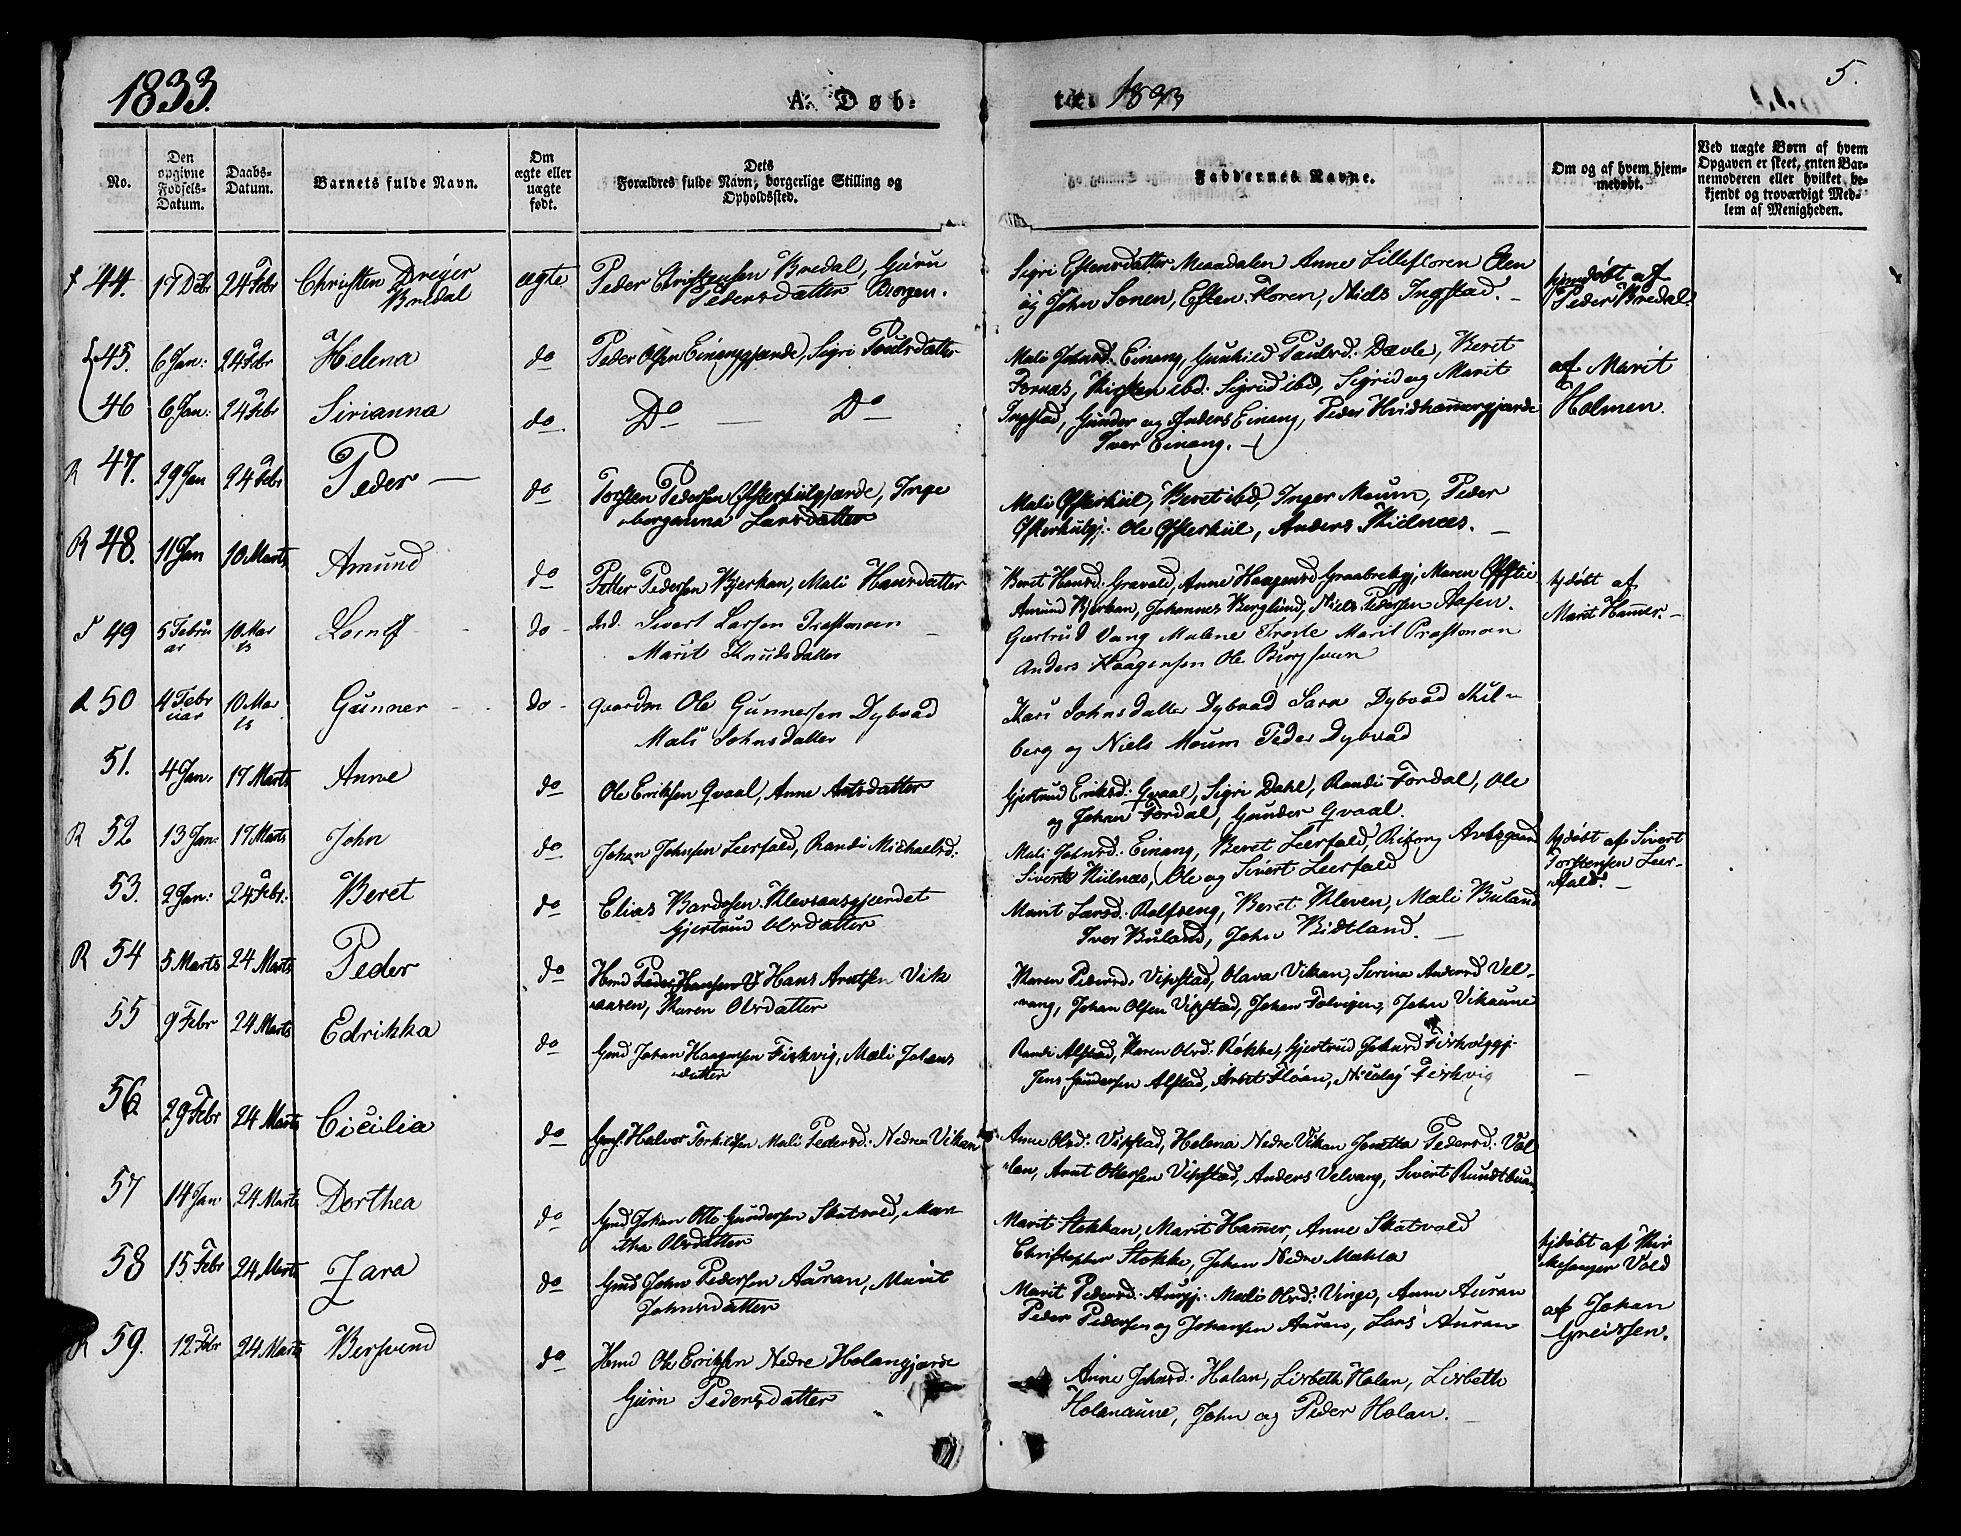 1833.
A. Døb-
te. 1833
5.
No.
Den opgivne Fødsels-Datum.
Daabs-Datum.
Barnets fulde Navn.
Om ægte eller uægte født.
Dets
Forældres fulde Navn, borgerlige Stilling og
Opholdssted.
Faddernes Navne.
Om og af hvem hjem-
medøbt.
Ved uægte Børn af hvem
Opgaven er skeet, enten Bar-
nemoderen eller hvilket be-
kjendt og troværdigt Med-
lem af Menigheden.
44. 17 Debr 24 Febr Christen Dreyer Bredal ægte Peder Christensen Bredal, Guru Pedersdatter Borgen.
Sigri Estensdatter Meaadalen Anne Lillefloren Elen
og John Sonen, Esten Floren, Niels Ingstad.
hjemdøbt af
Peder Bredal.
45. 6 Jan: 24 Febr Helena do Peder Olsen Einanggjærde, Sigri Poulsdatter
46 6 Jan: 24 Febr Sirianna do Do — Do
Mali Johnsd: Einang, Gunhild Paulsd: Dævle, Beret
Fornæs, Kirsten ibd: Sigrid ibd, Sigrid og Marit
Ingstad, Gunder og Anders Einang, Peder Hvidhammergjærde
Iver Einang.
af Marit
Holmen.
R 47. 29 Jan 24 Febr Peder do Torsten Pedersen Østerkulgjærde, Inge
borganna Larsdatter
Mali Østerkiil, Beret ibd, Inger Moum, Peder
Østerkulgj: Ole Østerkiil, Anders Kiilnæs.
R 48. 11 Jan 10 Marts Amund do Petter Pedersen Bjerkan, Mali Hansdatter
Beret Hansd: Gravold, Anne Haagensd Graabrekgj, Maren
Amund Bjerkan, Johannes Berglund, Niels Pedersen Aasen.
hjdøbt af
Marit Hamer.
49 5 Februar 10 Marts do Ind. Sivert Larsen Præstmoen
Marit Knudsdatter
Gjertrud Vang Malene Troste Marit Præstmoen
Anders Haagensen Ole
50 4 Februar 10 Marts Gunner do Gaardm Ole Gunnersen Dybvad
Mali Johnsdatter
Kari Johnsdatter Dybvad Sara Dybvad Skil-
berg og Niels Moum Peder Dybvad
51. 4 Jan: 17 Marts Anne do Ole Eriksen Qvaal, Anne Arntsdatter
Gjertrud Eriksd: Qvaal, Sigri Dahl, Randi Fordal, Ole
og Johan Fordal, Gunder Qvaal.
R 52 13 Jan: 17 Marts John do Johan Johnsen Leerfald, Randi Michaelsd:
Mali Johnsd: Einang, Beret Leerfald,
Sivert Kiilnæs, Ole og Sivert Leerfald
hjdøbt af Sivert
Torstensen Leer-
fald.
53. 2 Jan: 24 Febr: Beret do Elias Bardosen Klevsaasgjærdet
Gjertrud Olsdatter
Marit Larsd: Rolfseng, Beret Kleven, Mali Buland
Iver Buland, John Bidtland.
R 54 5 Marts 24 Marts Peder do Hmd Peder Hansen & Hans Arntsen Vik
aaren, Maren Olsdatter
Maren Pedersd: Vipstad, Olava Vikan, Serina Andersd Vel-
vang, Johan Olsen Vipstad, Johan Folvigen, John Vikaune
55 9 Febr 24 Marts Edrikka do Gmd Johan Haagensen Fiskvig, Mali Johans
datter
Randi Alstad, Karen Olsd: Røkke, Gjertrud Johnsd Fiskviggj.
Jens Gundersen Alstad, Arnt Floan, Nicolay Fiskvig
56 29 Febr 24 Marts Cicilia do Halvor Torkildsen Mali Pedersd: Nedre Vikan
Anne Olsd: Vipstad, Helena Nedre Vikan Jonetta Pedersd: Val-
len, Arnt Ottersen Vipstad, Anders Velvang, Sivert
57 14 Jan 24 Marts Dorthea do Gmd Johan Otto Gundersen Skatvold, Mar-
itha Olsdatter
Marit Stokkan, Marit Hamer, Anne Skatvold
Christopher Stokke, Johan Nedre Mæhla
hjdøbt af Kir
kesanger Vold
58 15 Febr 24 Marts Zara do Gmd John Pedersen Auran, Marit
Johnsdatter
Marit Pedersd: Aurgj. Mali Olsd: Vinge, Anne Auran
Peder Pedersen og Johansen Auran, Lars Auran
af Johan
Greissen.
59. 12 Febr 24 Marts Bersvend do Hmd Ole Eriksen Nedre Holangjærde
Guru Pedersdatter
Anne Johnsd: Holan, Lisbeth Holan, Lisbeth
Holanaune, John og Peder Holan.